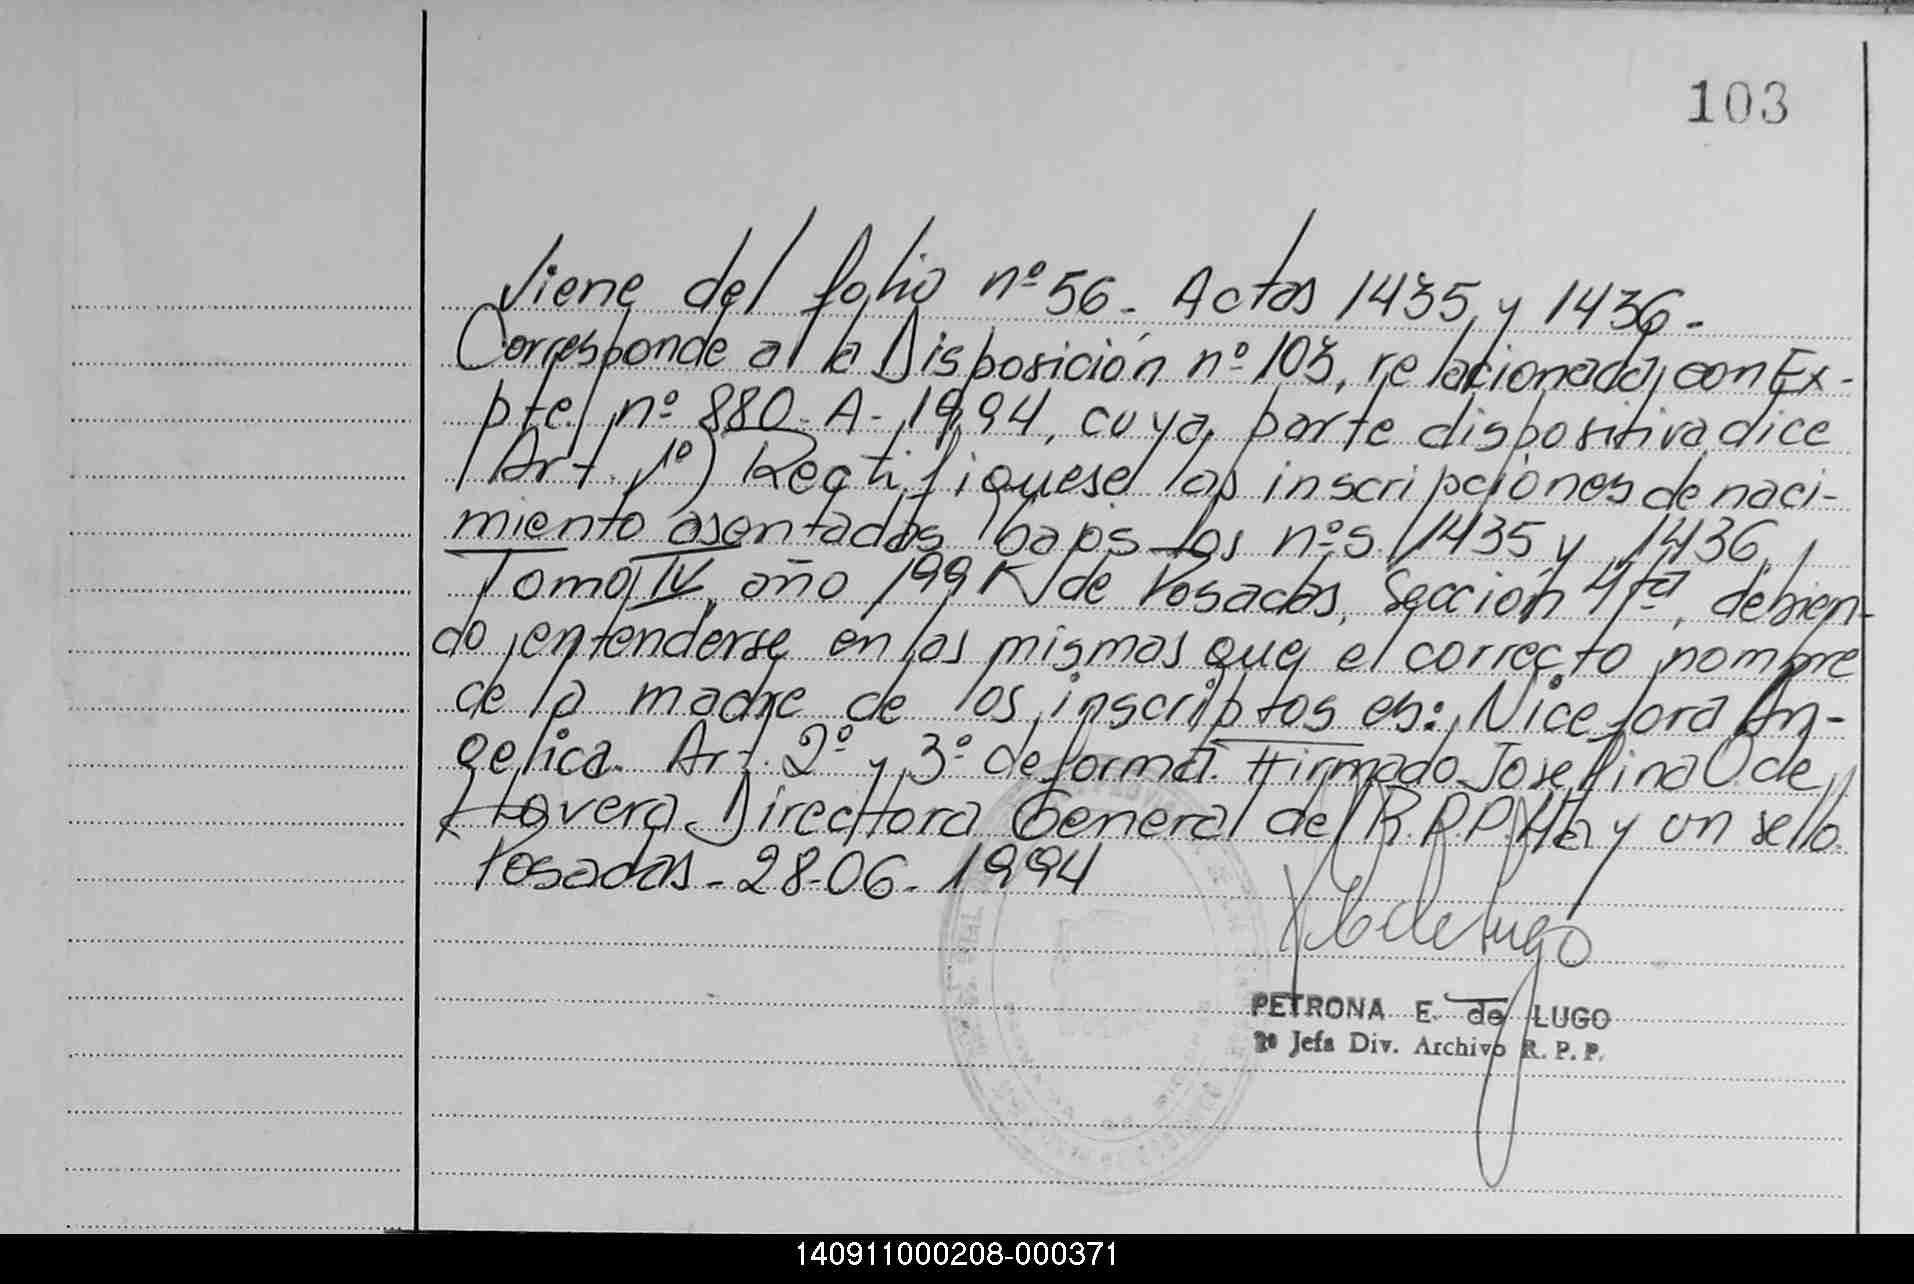 103
Viene del folio nº 56. Actas 1435 y 1436.
Corresponde a la Disposición nº 103, relacionada con Ex-
pte. nº 880-A-1994, cuya parte dispositiva dice
Art. 1º) Rectifiquese las inscripciones de naci-
miento asentadas bajo los nºs. 1435 y 1436,
Tomo IV, año de Posadas, Sección 4ta, debien-
do entenderse en las mismas que el correcto nombre
de la madre de los inscriptos es: Nicefora An-
gelica. Art. 2º y 3º de forma. Firmado Josefina O. de
Directora General del R.P.P. Hay un sello.
Posadas - 28-06-1994
PETRONA E. de LUGO
2º Jefa Div. Archivo R. P. P.
140911000208-000371